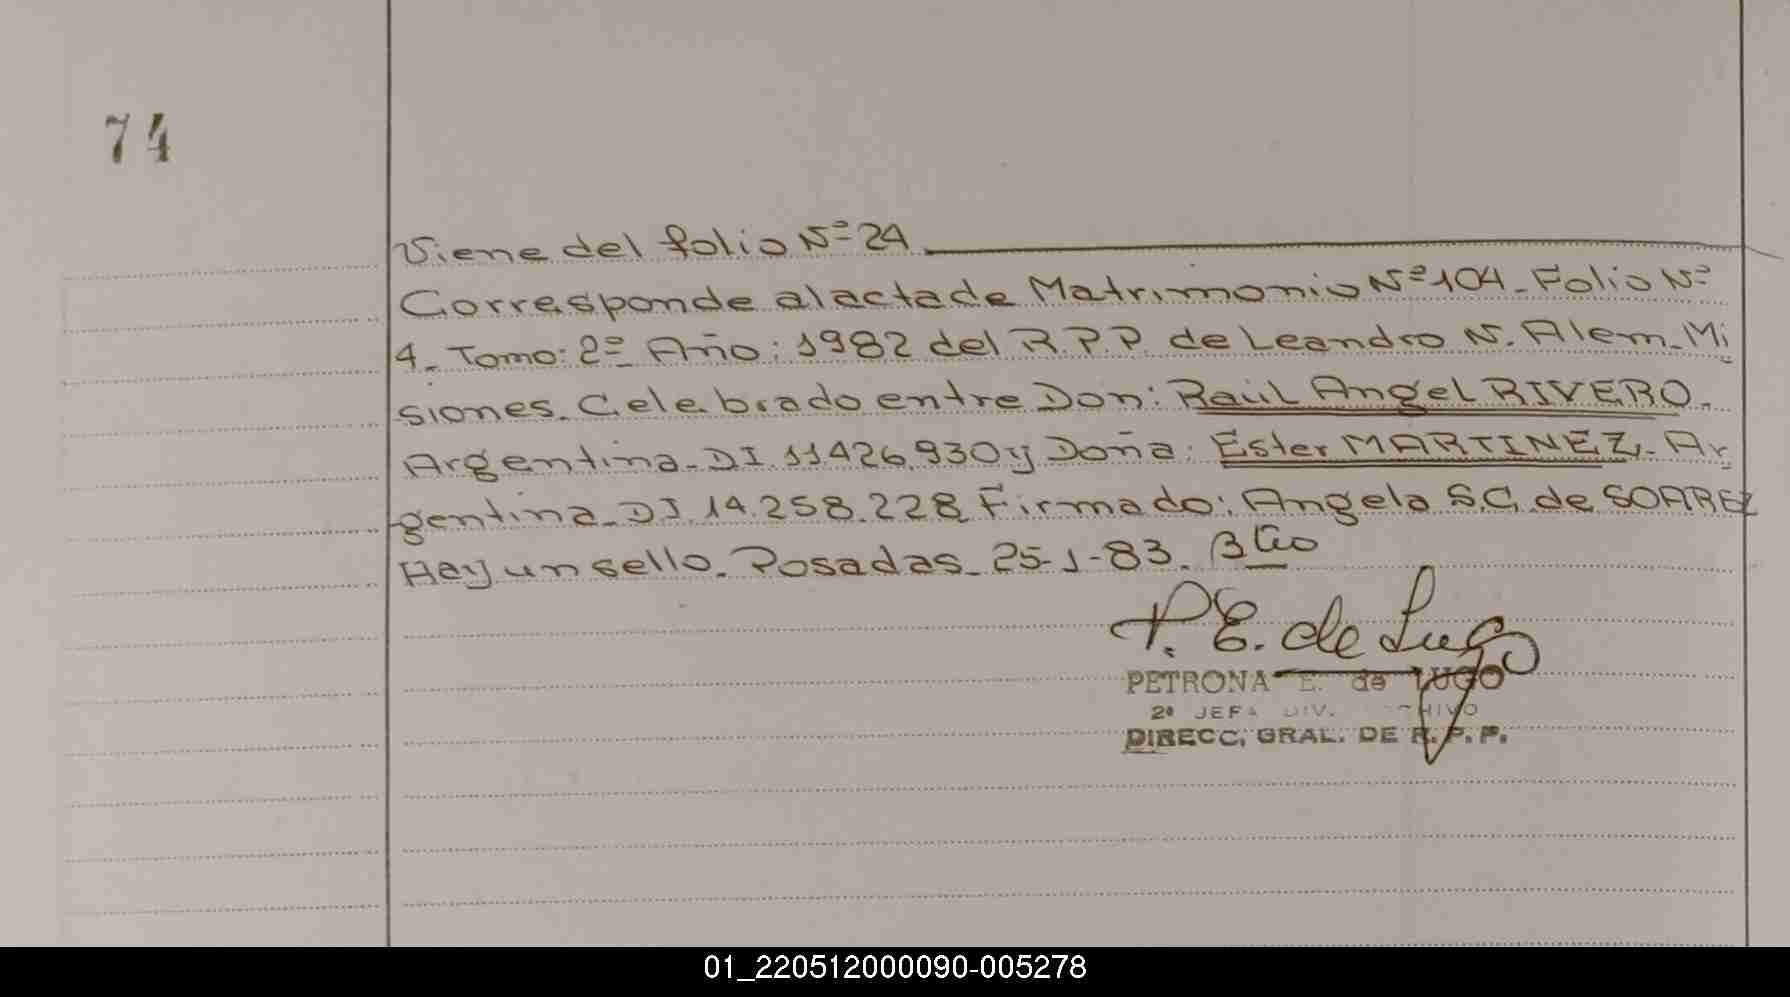 74
Viene del folio Nº 24
Corresponde al acta de Matrimonio Nº 104_ Folio Nº
4_ Tomo: 2º Año: 1982 del R.P.P. de Leandro N. Alem_ Mi
siones_ Celebrado entre Don: Raúl Angel RIVERO_
Argentina_ DI. 11426.930 y Doña: Ester MARTINEZ_ Ar
gentina_ DI. 14.258.228 Firmado: Angela S.C. de SOAREZ
Hay un sello. Posadas_ 25-1-83.
P. E. de Lugo
PETRONA E. de LUGO
2ª JEFA DIV.
DIRECC. GRAL. DE R. P. P.
01_220512000090-005278